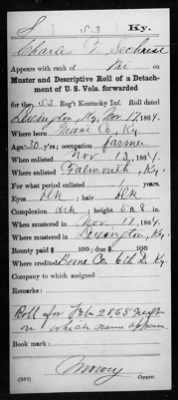 S 53 Ky.
Charles T. Sechrist
Appears with rank of Pri on
Muster and Descriptive Roll of a Detach-
ment of U. S. Vols. forwarded
for the 53 Reg't Kentucky Inf. Roll dated
Lexington, Ky, Nov 17, 1864.
Where born Co, Ky.
Age 30 y'rs; occupation farmer
When enlisted Nov 13, 1864.
Where enlisted Falmouth, Ky.
For what period enlisted 1 years.
Eyes blk ; hair blk
Complexion drk ; height 5 ft. 8 in.
When mustered in Nov 17, 1864.
Where mustered in Lexington, Ky.
Bounty paid $ 100; due $ 100
Where credited Boone Co, 6th D. Ky
Company to which assigned
Remarks:
Roll for
on which name appears
Book mark:
Copyist.